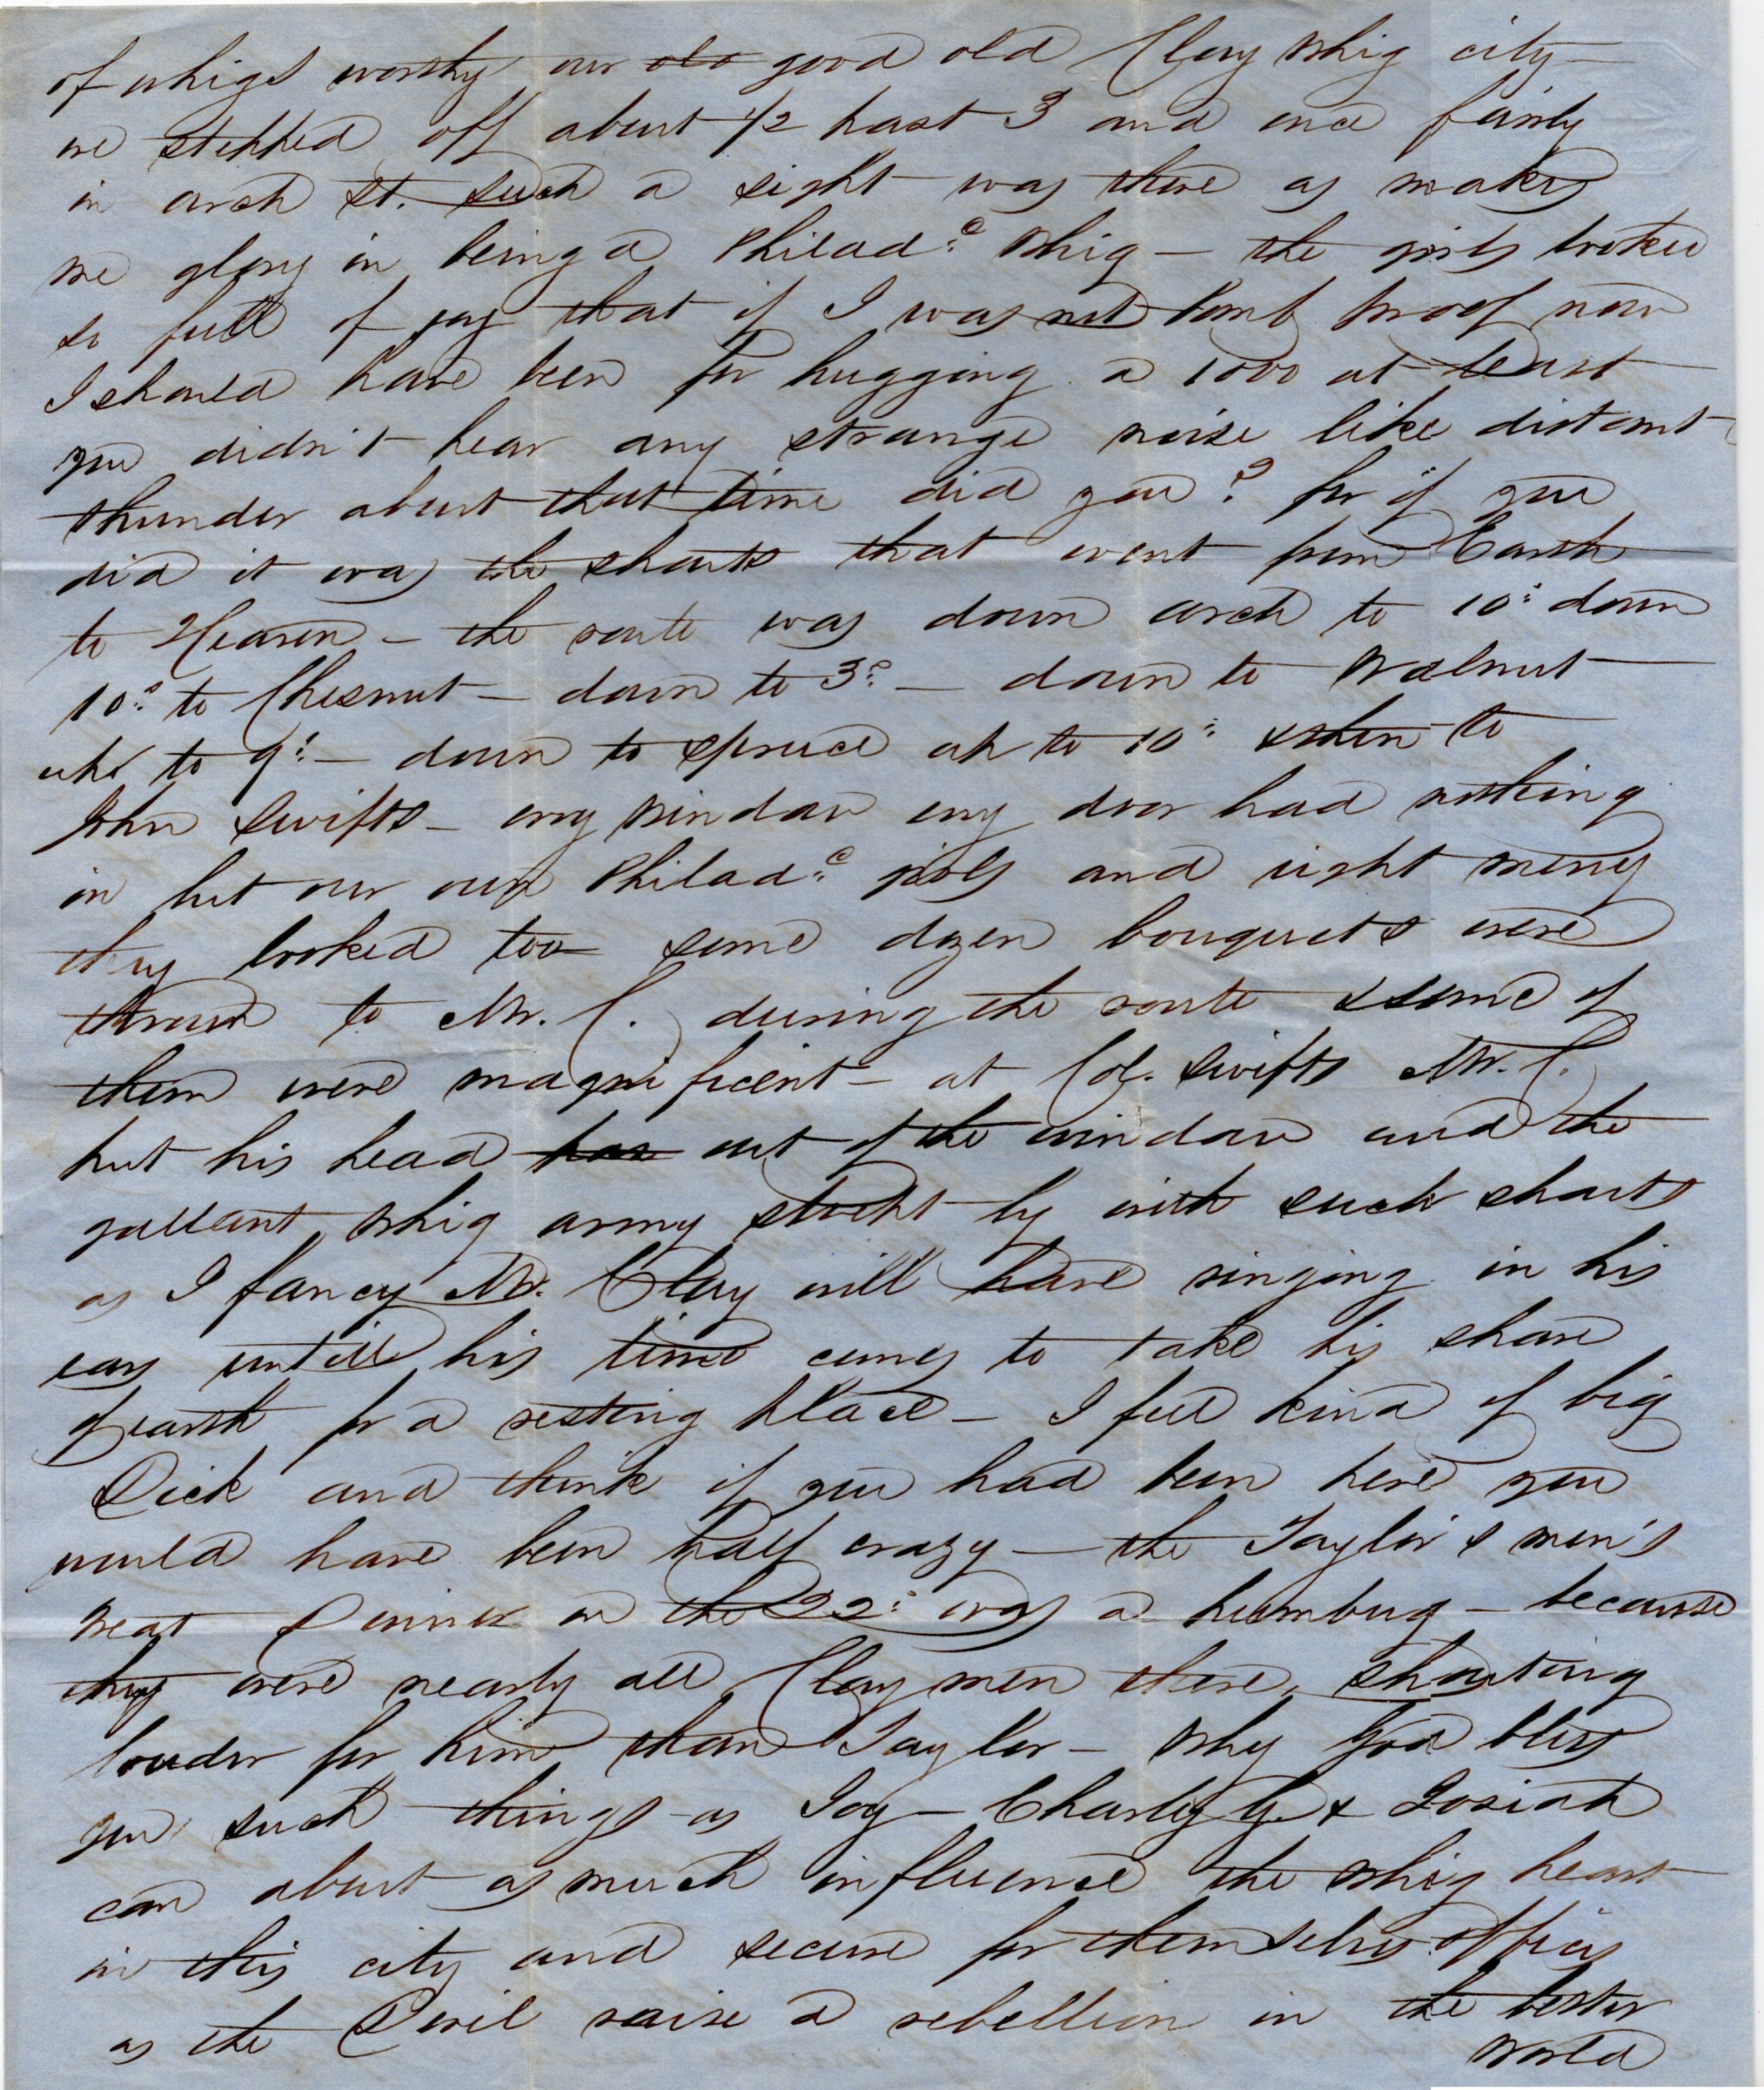 of whigs worthy our old good old Clay Whig city—
we stepped off about 1/2 past 3 and once fairly
in arch st. such a sight was there as makes
me glory in being a Philad.ᵉ Whig — the girls looked
so full of joy that if I was not bomb proof now
I should have been for hugging a 1000 at least
you didn't hear any strange noise like distant
thunder about that time did you? for if you
did it was the shouts that went from Earth
to Heaven — the route was down arch to 10: down
10: to Chesnut — down to 3: — down to Walnut —
up to 9: — down to Spruce up to 10: & then to
John Swifts — evry window evry door had nothing
in but our own Philad.ᵉ girls and right merry
they looked too some dozen bouquets were
thrown to Mr. C. during the route & some of
them were magnificent — at Col. Swifts Mr. C.
put his head out of the window and the
gallant Whig army by with such shouts
as I fancy Mr. Clay will have ringing in his
ears untill his time comes to take his share
of earth for a resting place — I feel kind of big
Dick and think if you had been here you
would have been half crazy — the Taylor's men's
great Dinner on the 22: was a humbug — because
they were nearly all Clay men there, shouting
louder for him than Taylor — Why God bless
you such things as Joy — Charley G. & Josiah
can about as much influence the Whig heart
in this city and secure for themselves offices
as the Devil raise a rebellion in the better
world